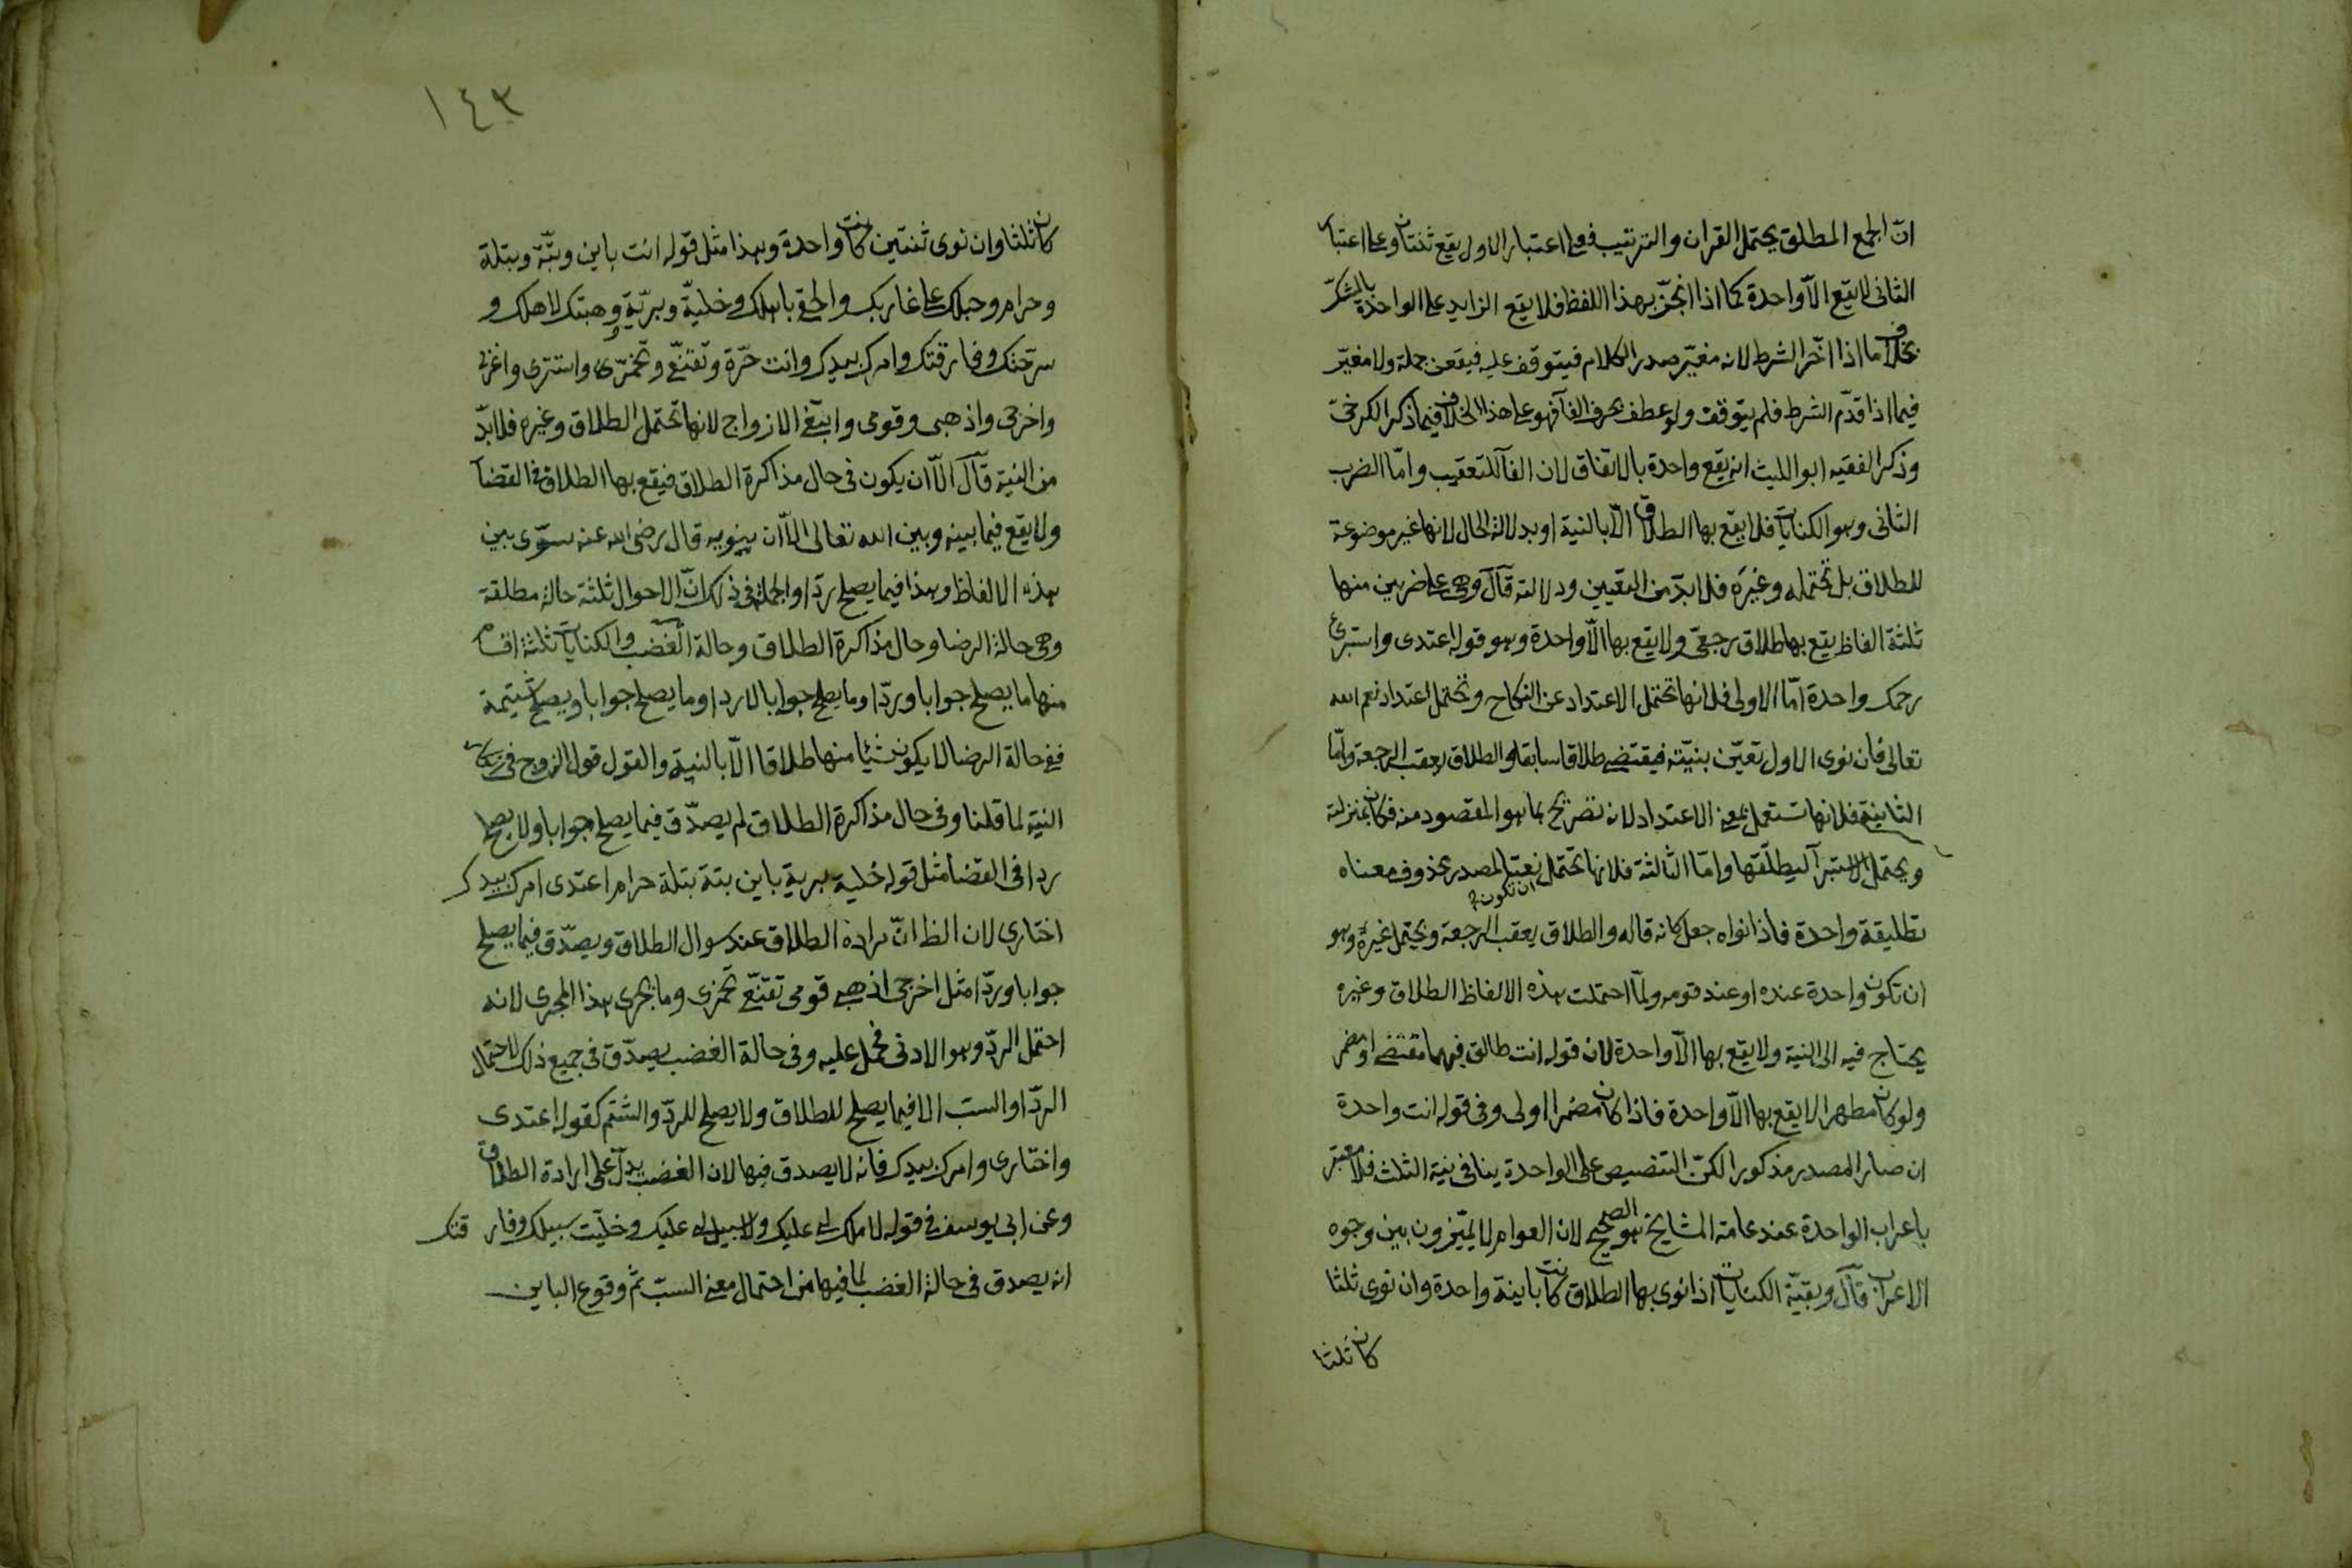 انّ الجمع المطلق يحتمل القران والترتيب فعلى اعتبار الاول يقع ثنتان وعلى اعتبار
الثانى لا يقع الّا واحدة كما اذا انجز بهذا اللفظ فلا يقع الزايد على الواحدة بالشكّ
بخلاف ما اذا اخّر الشرط لانه مغيّر صدر الكلام فيتوقف عليه فيقعن جملة ولا مغيّر
فيما اذا قدّم الشرط فلم يتوقف ولو عطف بحرف الفآ فهو على هذا الخلاف فيما ذكر الكرخىّ
وذكر الفقيه ابو الليث انه يقع واحدة بالاتفاق لان الفآ للتعقيب وامّا الضرب
الثانى وهو الكنايات فلا يقع بها الطلاق الّا بالنية او بدلالة الحال لانها غير موضوعة
للطلاق بل تحتمله وغيره فلا بدّ من التعيين ودلالته قال وهى على ضربين منها
ثلثة الفاظ يقع بها طلاق رجعىّ ولا يقع بها الّا واحدة وهو قوله اعتدى واستبرئ
رحمك وواحدة امّا الاولى فلانها تحتمل الاعتداد عن النكاح وتحتمل اعتداد نعم الله
تعالى فان نوى الاول تعيّن بنيّته فيقتضى طلاقا سابقا والطلاق يعقب الرجعة وامّا
الثانية فلانها تستعمل بمعنى الاعتداد لانه تصريح بما هو المقصود منه فكان بمنزلته
ويحتمل الاستبرآ ليطلّقها وامّا الثالثة فلانها تحتمل ان تكون نعتا لمصدر محذوف معناه
تطليقة واحدة فاذا نواه جعل كانه قاله والطلاق يعقب الرجعة ويحتمل غيره وهو
ان تكون واحدة عنده او عند قومه ولمّا احتملت هذه الالفاظ الطلاق وغيره
يحتاج فيه الى النية ولا يقع بها الّا واحدة لان قوله انت طالق فيها مقتضى او مضمر
ولو كان مظهرا لا يقع بها الّا واحدة فاذا كان مضمرا اولى وفى قوله انت واحدة
ان صار المصدر مذكورا لكنّ التنصيص على الواحدة ينافى نية الثلث فلا معتبر
باعراب الواحدة عند عامة المشايخ هو الصحيح لان العوام لا يميّزون بين وجوه
الاعراب قال وبقيّة الكنايات اذا نوى بها الطلاق كانت باينة واحدة وان نوى ثلثا
كان ثلثا
١٤٣
كان ثلثا وان نوى ثنتين كانت واحدة وهذا مثل قوله انت باين وبتّة وبتلة
وحرام وحبلك على غاربك والحقى باهلك وخليّة وبريّة ووهبتك لاهلك و
سرّحتك وفارقتك وامرك بيدك وانت حرّة وتقنّعى وتخمّرى واستترى واغربى
واخرجى واذهبى وقومى وابتغى الازواج لانها تحتمل الطلاق وغيره فلا بدّ
من النية قال الّا ان يكون فى حال مذاكرة الطلاق فيقع بها الطلاق فى القضآ
ولا يقع فيما بينه وبين الله تعالى الّا ان ينويه قال رضى الله عنه سوّى بين
هذه الالفاظ وهذا فيما يصلح ردّا والجملة فى ذلك انّ الاحوال ثلثة حالة مطلقة
وهى حالة الرضا وحال مذاكرة الطلاق وحالة الغضب والكنايات ثلثة اقسام
منها ما يصلح جوابا وردّا وما يصلح جوابا لا ردا وما يصلح جوابا ويصلح شتيمة
ففى حالة الرضا لا يكون شئيا منها طلاقا الّا بالنية والقول قول الزوج فى انكار
النية لما قلنا وفى حال مذاكرة الطلاق لم يصدّق فيما يصلح جوابا ولا يصلح
ردا فى القضا مثل قوله خلية برية باين بتة بتلة حرام اعتدى امرك بيدك
اختارى لان الظ انّ مراده الطلاق عند سوال الطلاق ويصدّق فيما يصلح
جوابا وردّا مثل اخرجى اذهبى قومى تقنّعى تخمرى وما يجرى هذا المجرى لانه
احتمل الردّ وهو الادنى فحمل عليه وفى حالة الغضب يصدّق فى جميع ذلك لاحتمال
الردّ او السب الا فيما يصلح للطلاق ولا يصلح للردّ والشتم كقوله اعتدى
واختارى وامرك بيدك فانه لا يصدق فيها لان الغضب يدلّ على ارادة الطلاق
وعن ابى يوسف فى قوله لا ملك لى عليك ولا سبيل لى عليك وخلّيت سبيلك وفارقتك
انه يصدق فى حالة الغضب لما فيها من احتمال معنى السبّ ثمّ وقوع الباين